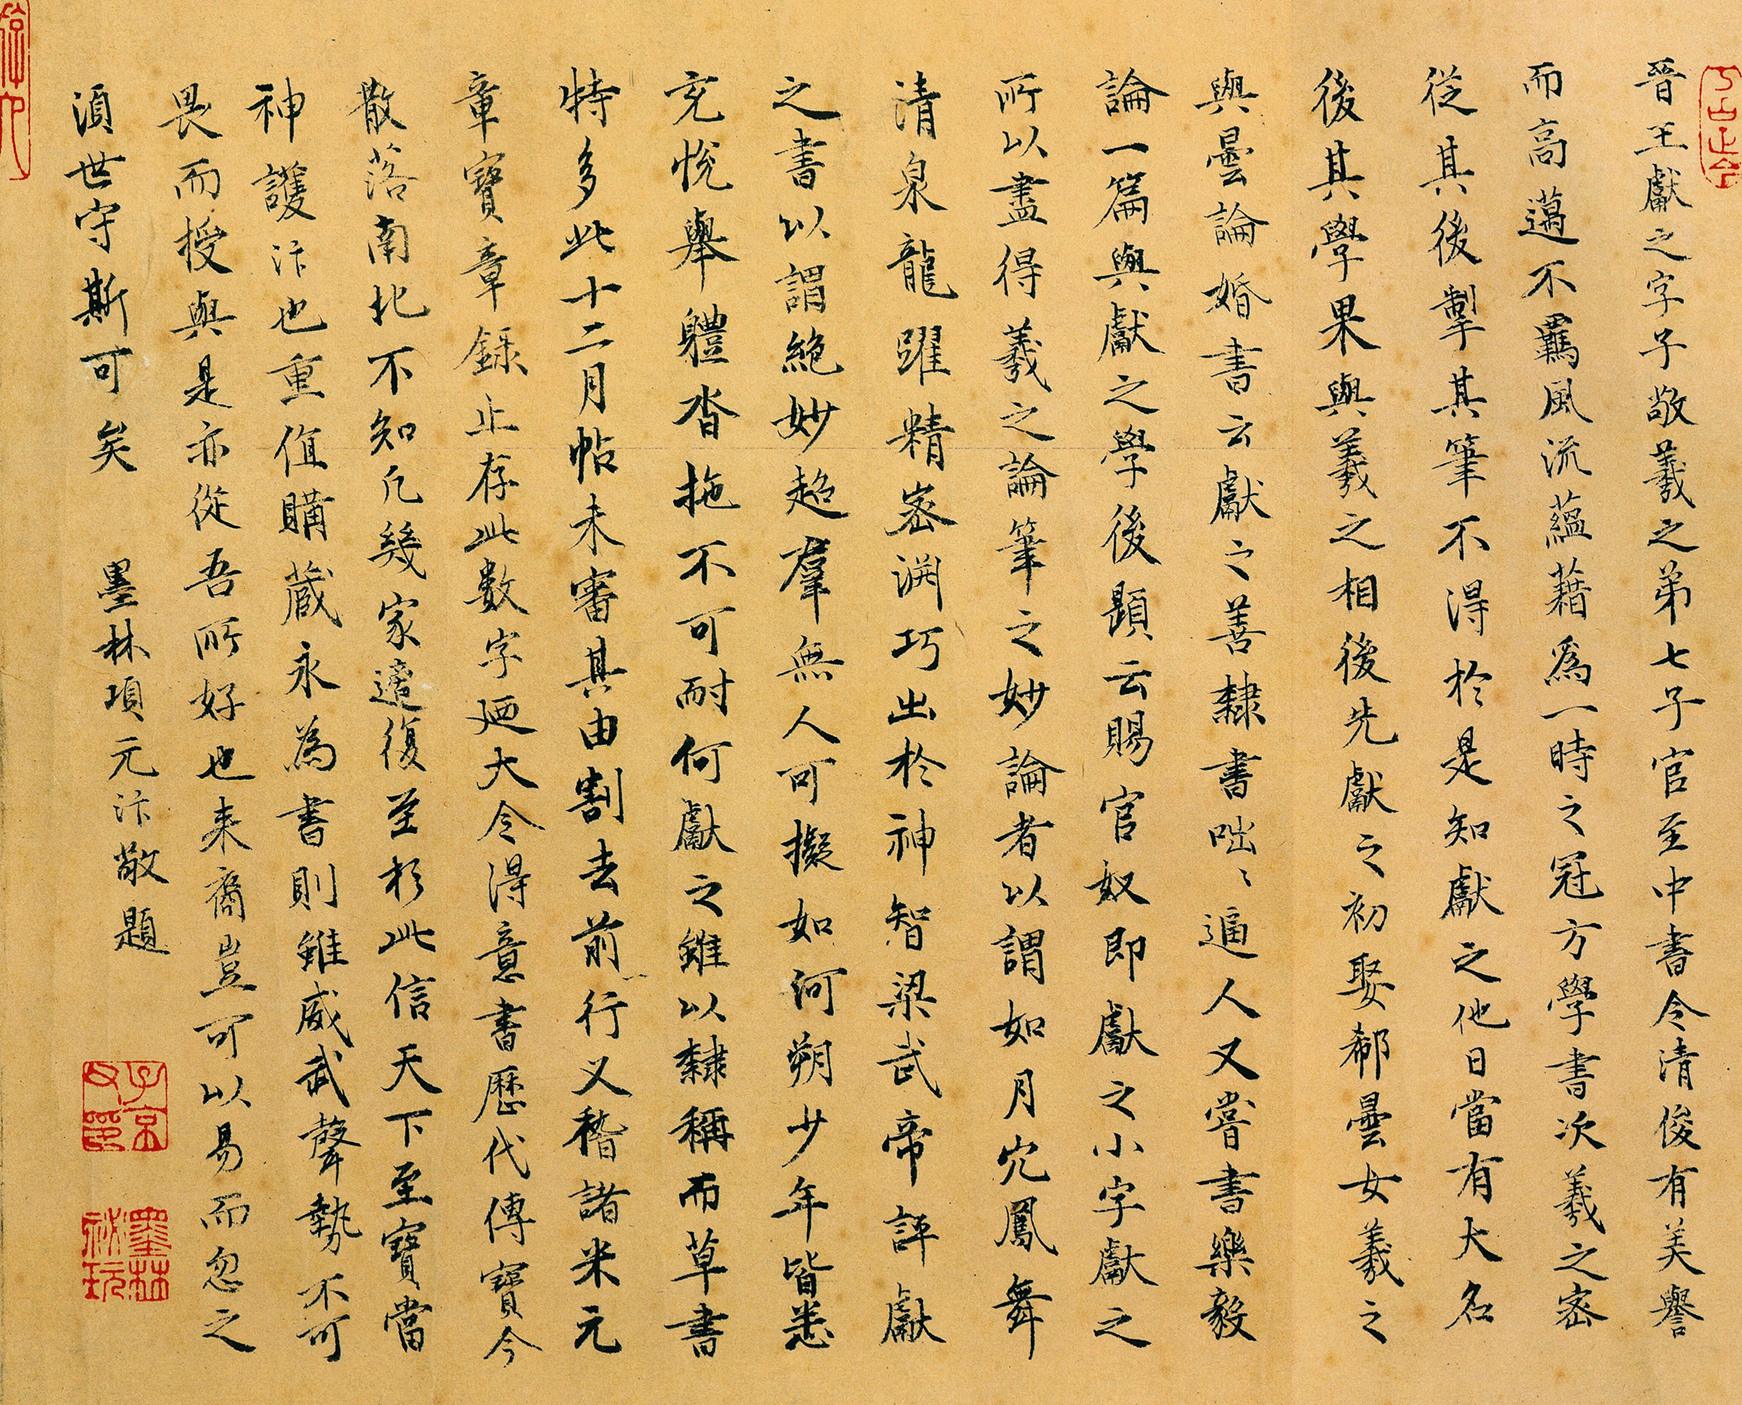 晉王獻之字子敬羲之弟七子官至中書令清俊有美譽
而高邁不羈風流蘊藉為一時之冠方學書次羲之密
從其後掣其筆不得於是知獻之他日當有大名
後其學果與羲之相後先獻之初娶郗曇女羲之
與曇論婚書云獻之善隸書咄〻逼人又嘗書樂毅
論一篇與獻之學後題云賜官奴即獻之小字獻之
所以盡得羲之論筆之妙論者以謂如月穴鳳舞
清泉龍躍精密淵巧出於神智梁武帝評獻
之書以謂絕妙超羣無人可擬如河朔少年皆悉
充悅舉體沓拖不可耐何獻之雖以隸稱而草書
特多此十二月帖未審其由割去前行又稽諸米元
章寶章錄止存此數字廼大令得意書歷代傳寶今
散落南北不知凡幾家適復至於此信天下至寶當
神護汴也重值購藏永為書則雖威武聲勢不可
畏而授與是亦從吾所好也来裔豈可以易而忽之
須世守斯可矣 墨林項元汴敬題
子京父印
墨林祕玩